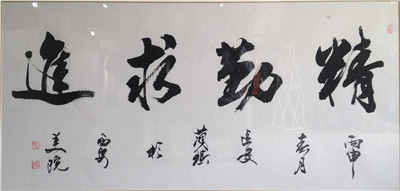 精勤求進
丙申
春月
於
西安
美院